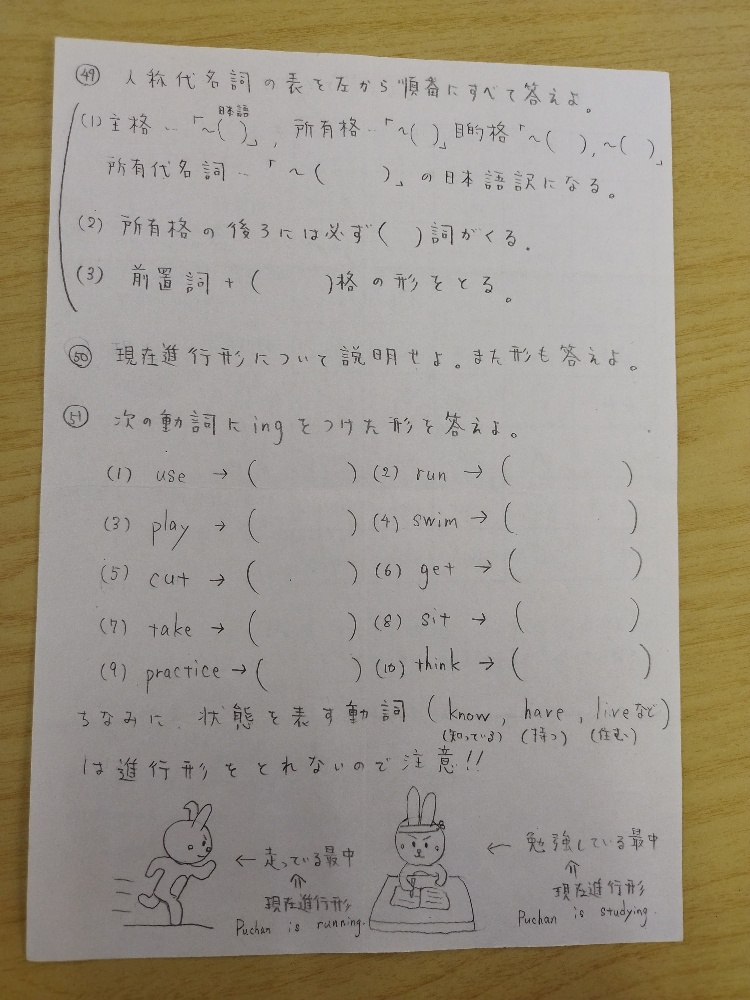 ㊾ 人称代名詞の表を左から順番にすべて答えよ。
(1) 主格‥「~(日本語)」, 所有格‥「~( )」目的格「~( ), ~( )」
所有代名詞‥「~( )」の日本語訳になる。
(2) 所有格の後ろには必ず( )詞がくる。
(3) 前置詞+( )格の形をとる。
㊿ 現在進行形について説明せよ。また形も答えよ。
51 次の動詞にingをつけた形を答えよ。
(1) use → ( ) (2) run → ( )
(3) play → ( ) (4) swim → ( )
(5) cut → ( ) (6) get → ( )
(7) take → ( ) (8) sit → ( )
(9) practice → ( ) (10) think → ( )
ちなみに、状態を表す動詞 (know, have, liveなど)
(知っている) (持つ) (住む)
は進行形をとれないので注意!!
← 走っている最中
⇑
現在進行形
Puchan is running.
← 勉強している最中
⇑
現在進行形
Puchan is studying.